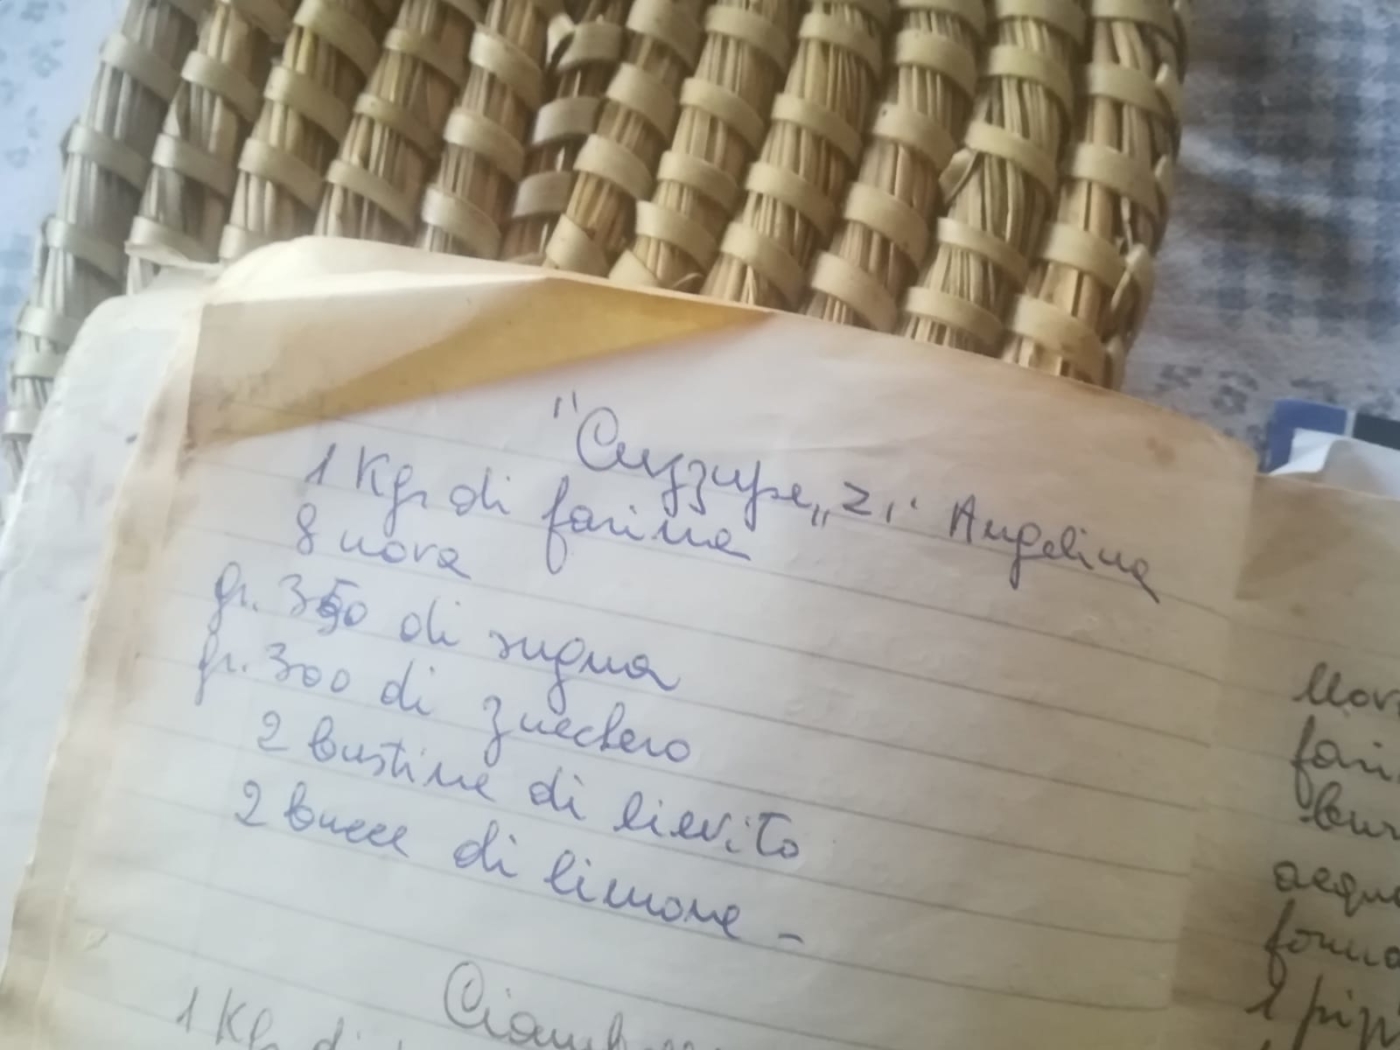 "Cuzzupe„ Zi' Angelina
1 Kgr di farina
8 uova
gr. 350 di sugna
gr. 300 di zucchero
2 bustine di lievito
2 bucce di limone -
1 Kg di
fari
acqua
1